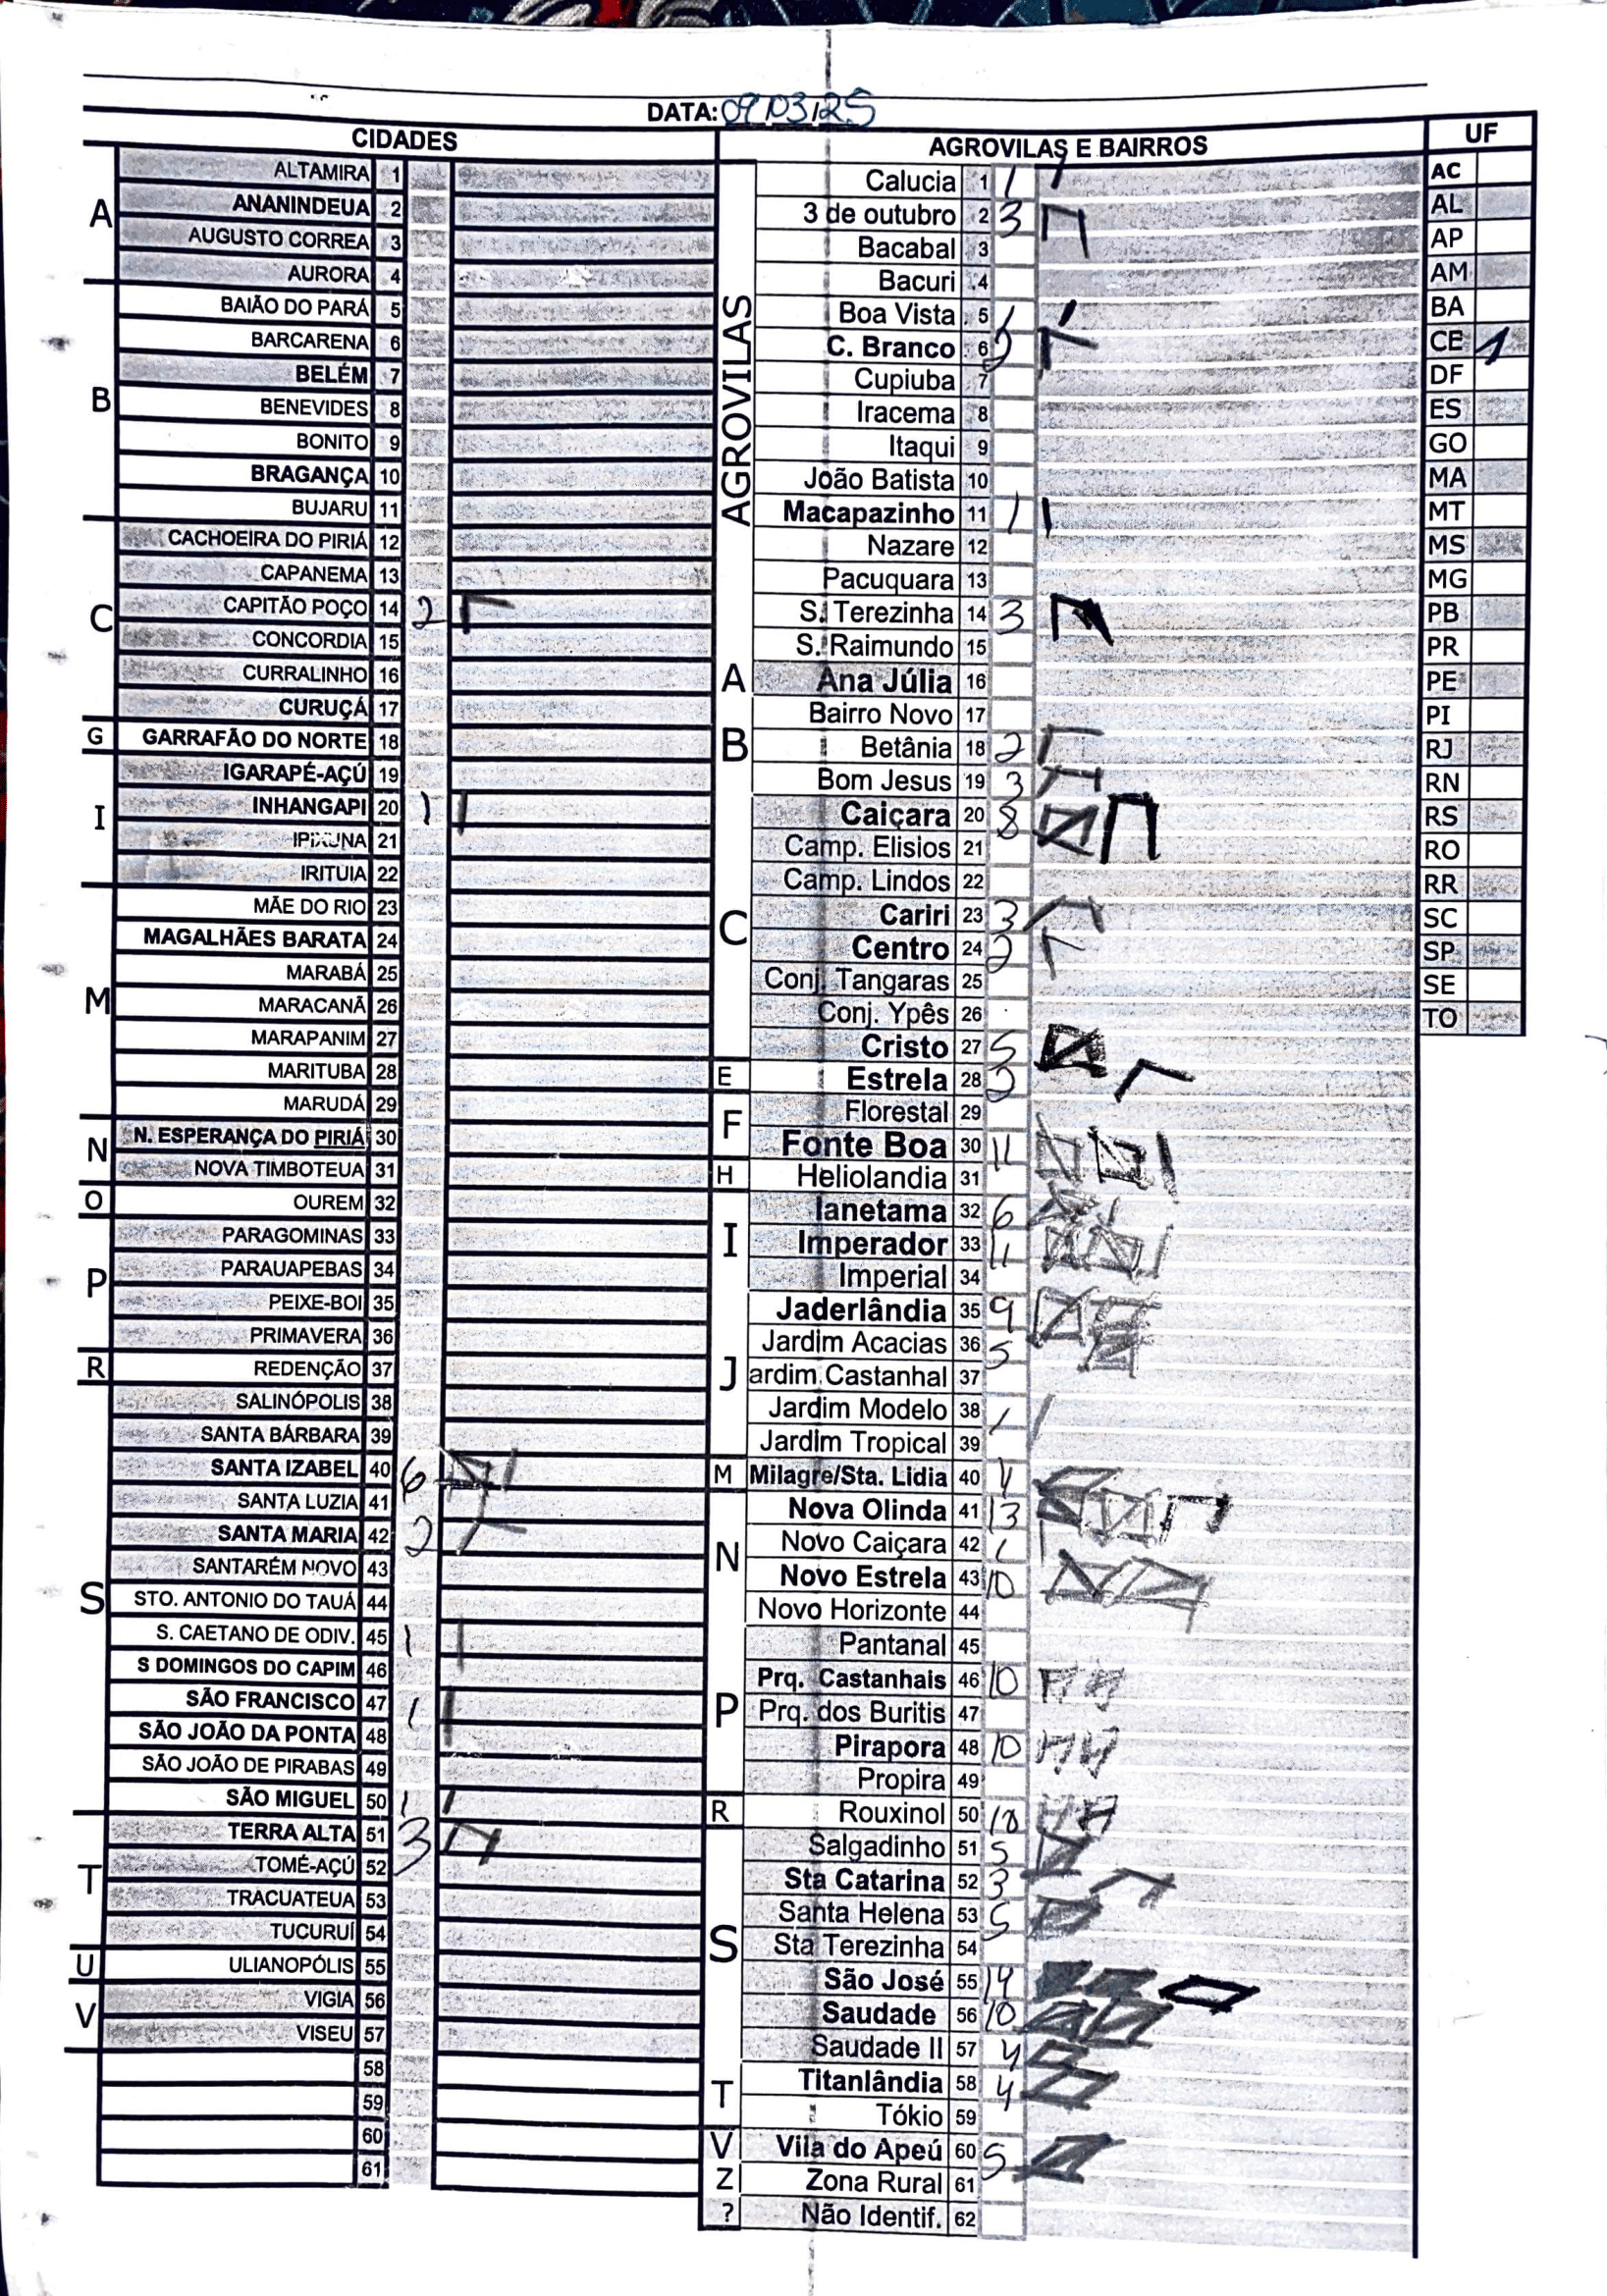 DATA: 09/03/25
CIDADES
A
ALTAMIRA 1
ANANINDEUA 2
AUGUSTO CORREA 3
AURORA 4
B
BAIÃO DO PARÁ 5
BARCARENA 6
BELÉM 7
BENEVIDES 8
BONITO 9
BRAGANÇA 10
BUJARU 11
C
CACHOEIRA DO PIRIÁ 12
CAPANEMA 13
CAPITÃO POÇO 14 2
CONCORDIA 15
CURRALINHO 16
CURUÇÁ 17
G
GARRAFÃO DO NORTE 18
I
IGARAPÉ-AÇÚ 19
INHANGAPI 20 1
IPIXUNA 21
IRITUIA 22
M
MÃE DO RIO 23
MAGALHÃES BARATA 24
MARABÁ 25
MARACANÃ 26
MARAPANIM 27
MARITUBA 28
MARUDÁ 29
N
N. ESPERANÇA DO PIRIÁ 30
NOVA TIMBOTEUA 31
O
OUREM 32
P
PARAGOMINAS 33
PARAUAPEBAS 34
PEIXE-BOI 35
PRIMAVERA 36
R
REDENÇÃO 37
S
SALINÓPOLIS 38
SANTA BÁRBARA 39
SANTA IZABEL 40 6
SANTA LUZIA 41
SANTA MARIA 42 2
SANTARÉM NOVO 43
STO. ANTONIO DO TAUÁ 44
S. CAETANO DE ODIV. 45 1
S DOMINGOS DO CAPIM 46
SÃO FRANCISCO 47 1
SÃO JOÃO DA PONTA 48
SÃO JOÃO DE PIRABAS 49
SÃO MIGUEL 50 1
T
TERRA ALTA 51 3
TOMÉ-AÇÚ 52
TRACUATEUA 53
TUCURUÍ 54
U
ULIANOPÓLIS 55
V
VIGIA 56
VISEU 57
58
59
60
61
AGROVILAS E BAIRROS
AGROVILAS
Calucia 1 1
3 de outubro 2 3
Bacabal 3
Bacuri 4
Boa Vista 5 1
C. Branco 6 2
Cupiuba 7
Iracema 8
Itaqui 9
João Batista 10
Macapazinho 11 1
Nazare 12
Pacuquara 13
S. Terezinha 14 3
S. Raimundo 15
A
Ana Júlia 16
B
Bairro Novo 17
Betânia 18 2
Bom Jesus 19 3
C
Caiçara 20 8
Camp. Elisios 21
Camp. Lindos 22
Cariri 23 3
Centro 24 2
Conj. Tangaras 25
Conj. Ypês 26
Cristo 27 5
E
Estrela 28 2
F
Florestal 29
Fonte Boa 30 11
H
Heliolandia 31
I
Ianetama 32 6
Imperador 33 11
Imperial 34
J
Jaderlândia 35 9
Jardim Acacias 36 5
Jardim Castanhal 37
Jardim Modelo 38 1
Jardim Tropical 39
M
Milagre/Sta. Lidia 40 4
N
Nova Olinda 41 13
Novo Caiçara 42 1
Novo Estrela 43 10
Novo Horizonte 44
P
Pantanal 45
Prq. Castanhais 46 10
Prq. dos Buritis 47
Pirapora 48 10
Propira 49
R
Rouxinol 50 10
S
Salgadinho 51 5
Sta Catarina 52 3
Santa Helena 53 5
Sta Terezinha 54
São José 55 14
Saudade 56 10
Saudade II 57 4
T
Titanlândia 58 4
Tókio 59
V
Vila do Apeú 60 5
Z
Zona Rural 61
?
Não Identif. 62
UF
AC
AL
AP
AM
BA
CE 1
DF
ES
GO
MA
MT
MS
MG
PB
PR
PE
PI
RJ
RN
RS
RO
RR
SC
SP
SE
TO